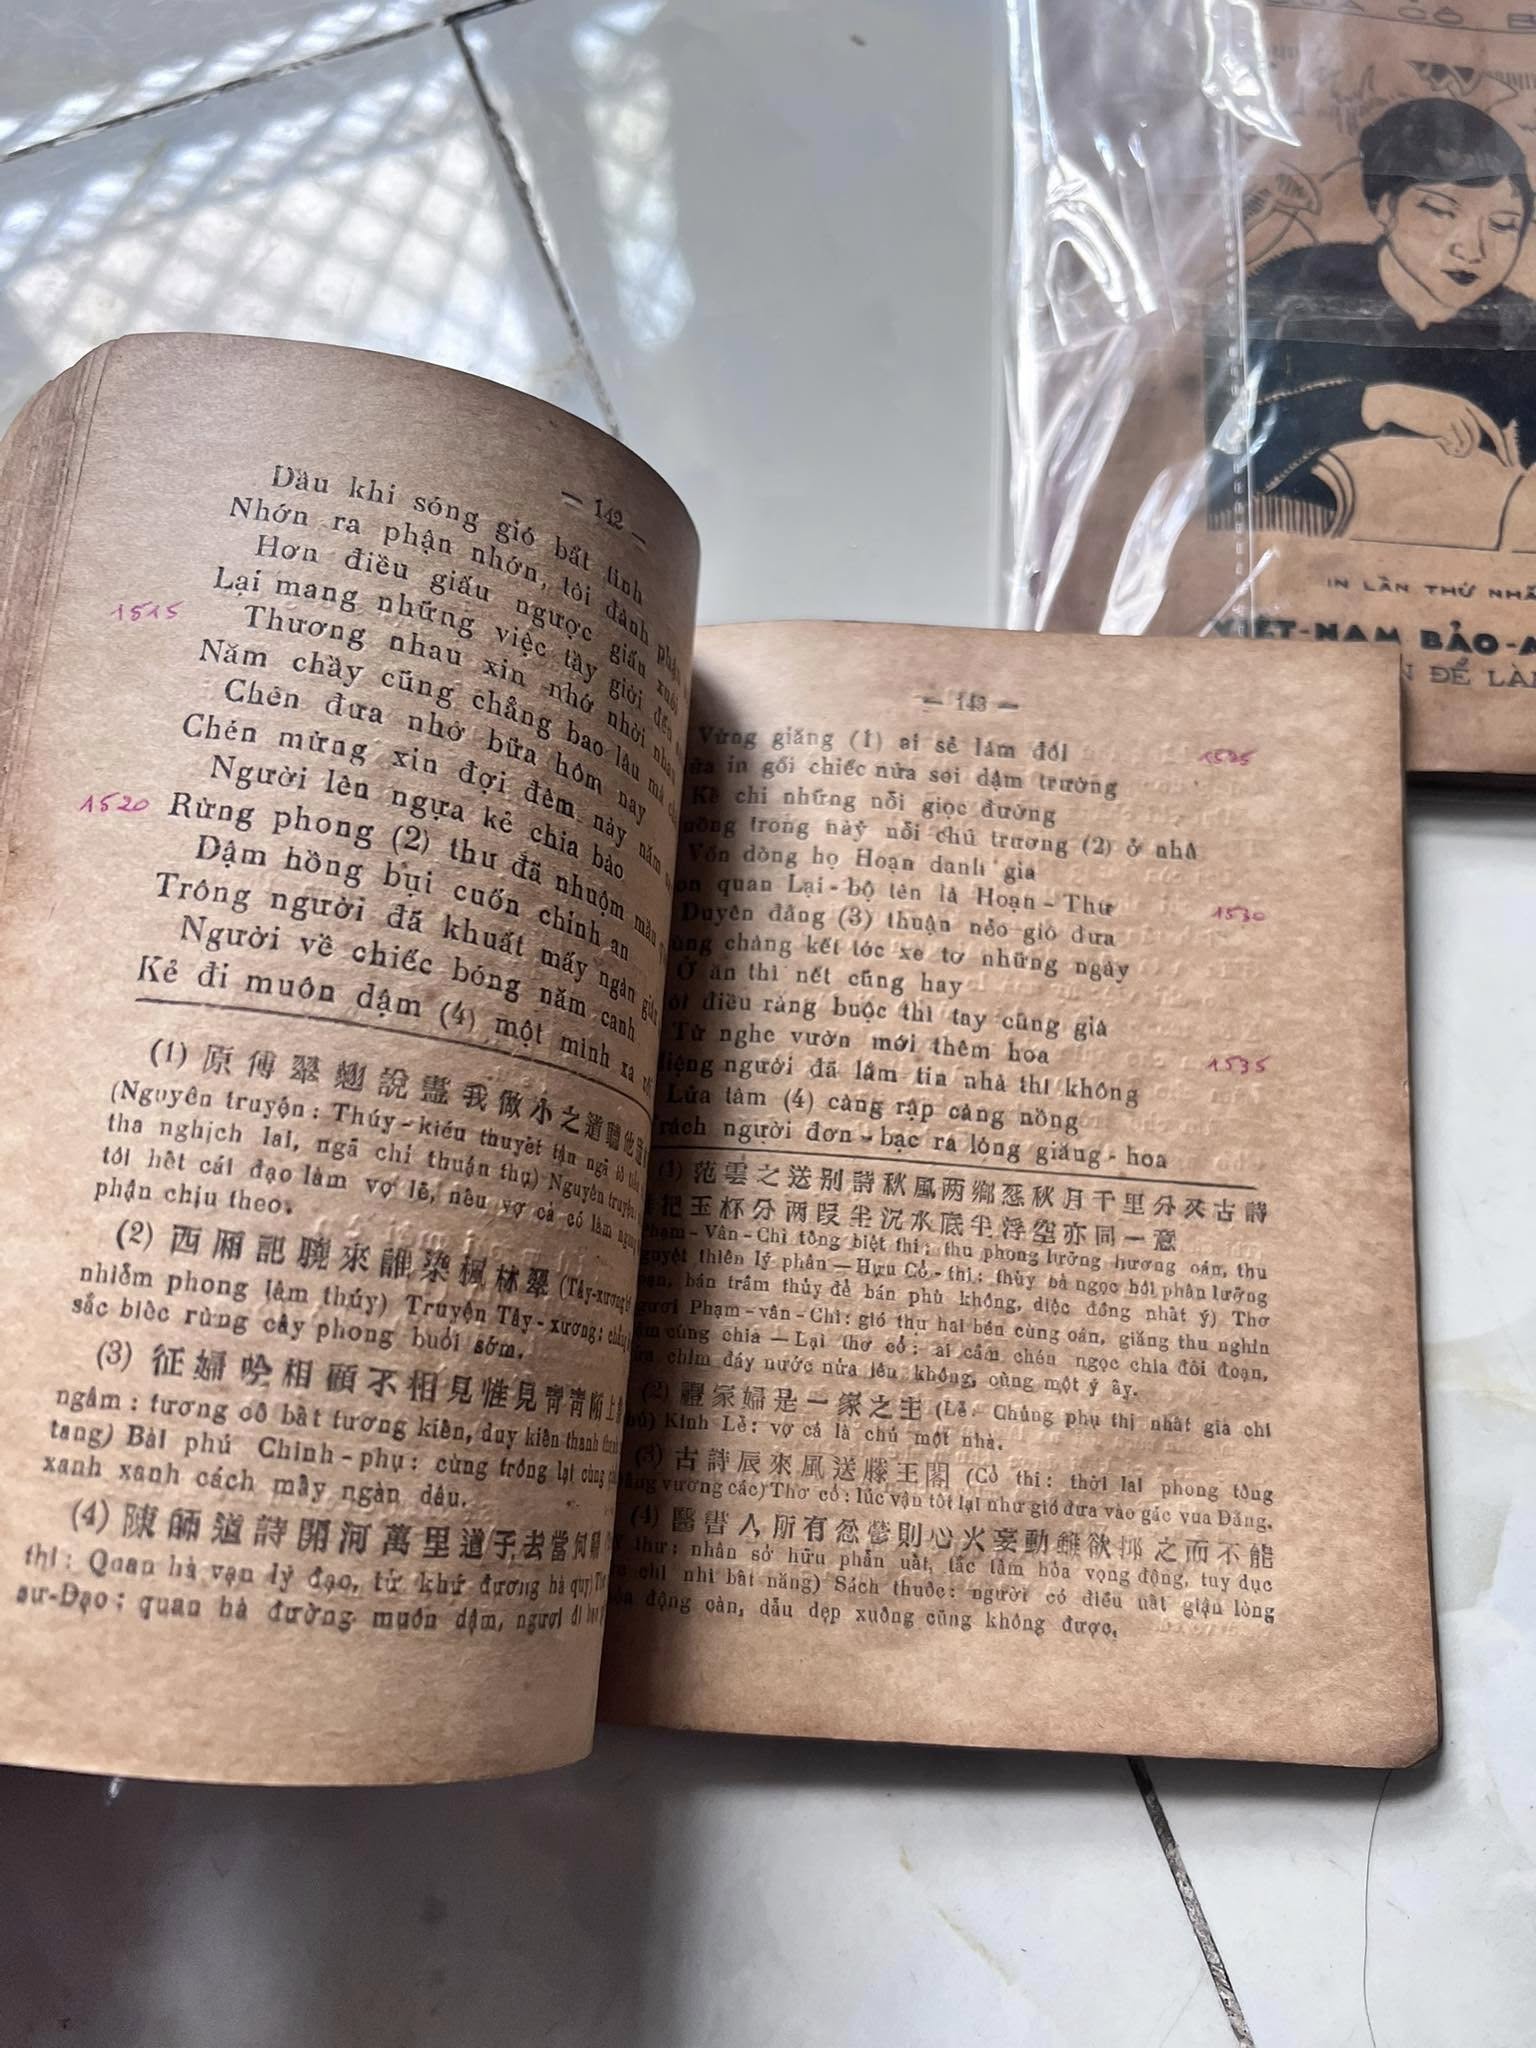 — 142 —
Dầu khi sóng gió bất tình
Nhớn ra phận nhớn, tôi đành phận
Hơn điều giấu ngược giấu xuôi
Lại mang những việc tầy giời đến
1515
Thương nhau xin nhớ nhời nhau
Năm chầy cũng chẳng bao lâu mà
Chén đưa nhở bữa hôm nay
Chén mừng xin đợi đêm này năm
Người lên ngựa kẻ chia bào
1520
Rừng phong (2) thư đã nhuộm mầu
Dặm hồng bụi cuốn chinh an
Trông người đã khuất mấy ngàn
Người về chiếc bóng năm canh
Kẻ đi muôn dậm (4) một mình xa
(1) 原傳翠翹說盡我做小之道聽他
(Nguyên truyện : Thúy-kiều thuyết tận ngã tố
tha nghịch lai, ngã chỉ thuận thụ) Nguyên truyện:
tôi hết cái đạo làm vợ lẽ, nếu vợ cả có làm
phận chịu theo.
(2) 西厢記曉來誰染楓林翠 (Tây-xương
nhiễm phong lâm thúy) Truyện Tây-xương:
sắc biếc rừng cây phong buổi sớm.
(3) 征婦吟相顧不相見惟見青青陌上
ngâm : tương cố bất tương kiến, duy kiến thanh
tang) Bài phú Chinh-phụ : cùng trông lại cùng
xanh xanh cách mấy ngàn dâu.
(4) 陳師道詩關河萬里道子去當何
thi : Quan hà vạn lý đạo, tử khứ đương hà
sư-Đạo : quan hà đường muôn dậm, ngươi đi
— 143 —
Vừng giăng (1) ai sẻ làm đôi
1525
in gối chiếc nửa soi dậm trường
Kể chi những nỗi giọc đường
trong này nỗi chủ trương (2) ở nhà
Vốn dòng họ Hoạn danh gia
quan Lại-bộ tên là Hoạn-Thư
1530
Duyên đằng (3) thuận nẻo gió đưa
chàng kết tóc xe tơ những ngày
Ở ăn thì nết cũng hay
điều ràng buộc thì tay cũng già
Từ nghe vườn mới thêm hoa
1535
người đã lắm tin nhà thì không
Lửa tâm (4) càng rập càng nồng
người đơn-bạc ra lòng giăng-hoa
(1) 范雲之送别詩秋風两鄉怨秋月千里分又古詩
把玉杯分两段半沉水底半浮空亦同一意
Phạm-Vân-Chi tống biệt thi : thu phong lưỡng hương oán, thu
nguyệt thiên lý phân — Hựu Cổ-thi : thủy bả ngọc bôi phân lưỡng
đoạn, bán trầm thủy để bán phù không, diệc đồng nhất ý) Thơ
Phạm-vân-Chi : gió thu hai bên cùng oán, giăng thu nghìn
cùng chia — Lại thơ cổ : ai cầm chén ngọc chia đôi đoạn,
chìm đáy nước nửa lên không, cùng một ý ấy.
(2) 禮家婦是一家之主 (Lễ. Chủng phụ thị nhất gia chi
Kinh Lễ : vợ cả là chủ một nhà.
(3) 古詩辰來風送滕王閣 (Cổ thi : thời lai phong tống
vương các) Thơ cổ : lúc vận tốt lại như gió đưa vào gác vua Đằng.
(4) 醫書人所有忿鬱則心火妄動雖欲抑之而不能
thư : nhân sở hữu phẫn uất, tắc tâm hỏa vọng động, tuy dục
chi nhi bất năng) Sách thuốc : người có điều uất giận lòng
động càn, dẫu dẹp xuống cũng không được.
IN LẦN THỨ NHẤ
VIỆT-NAM BẢO-
ĐỂ LÀ